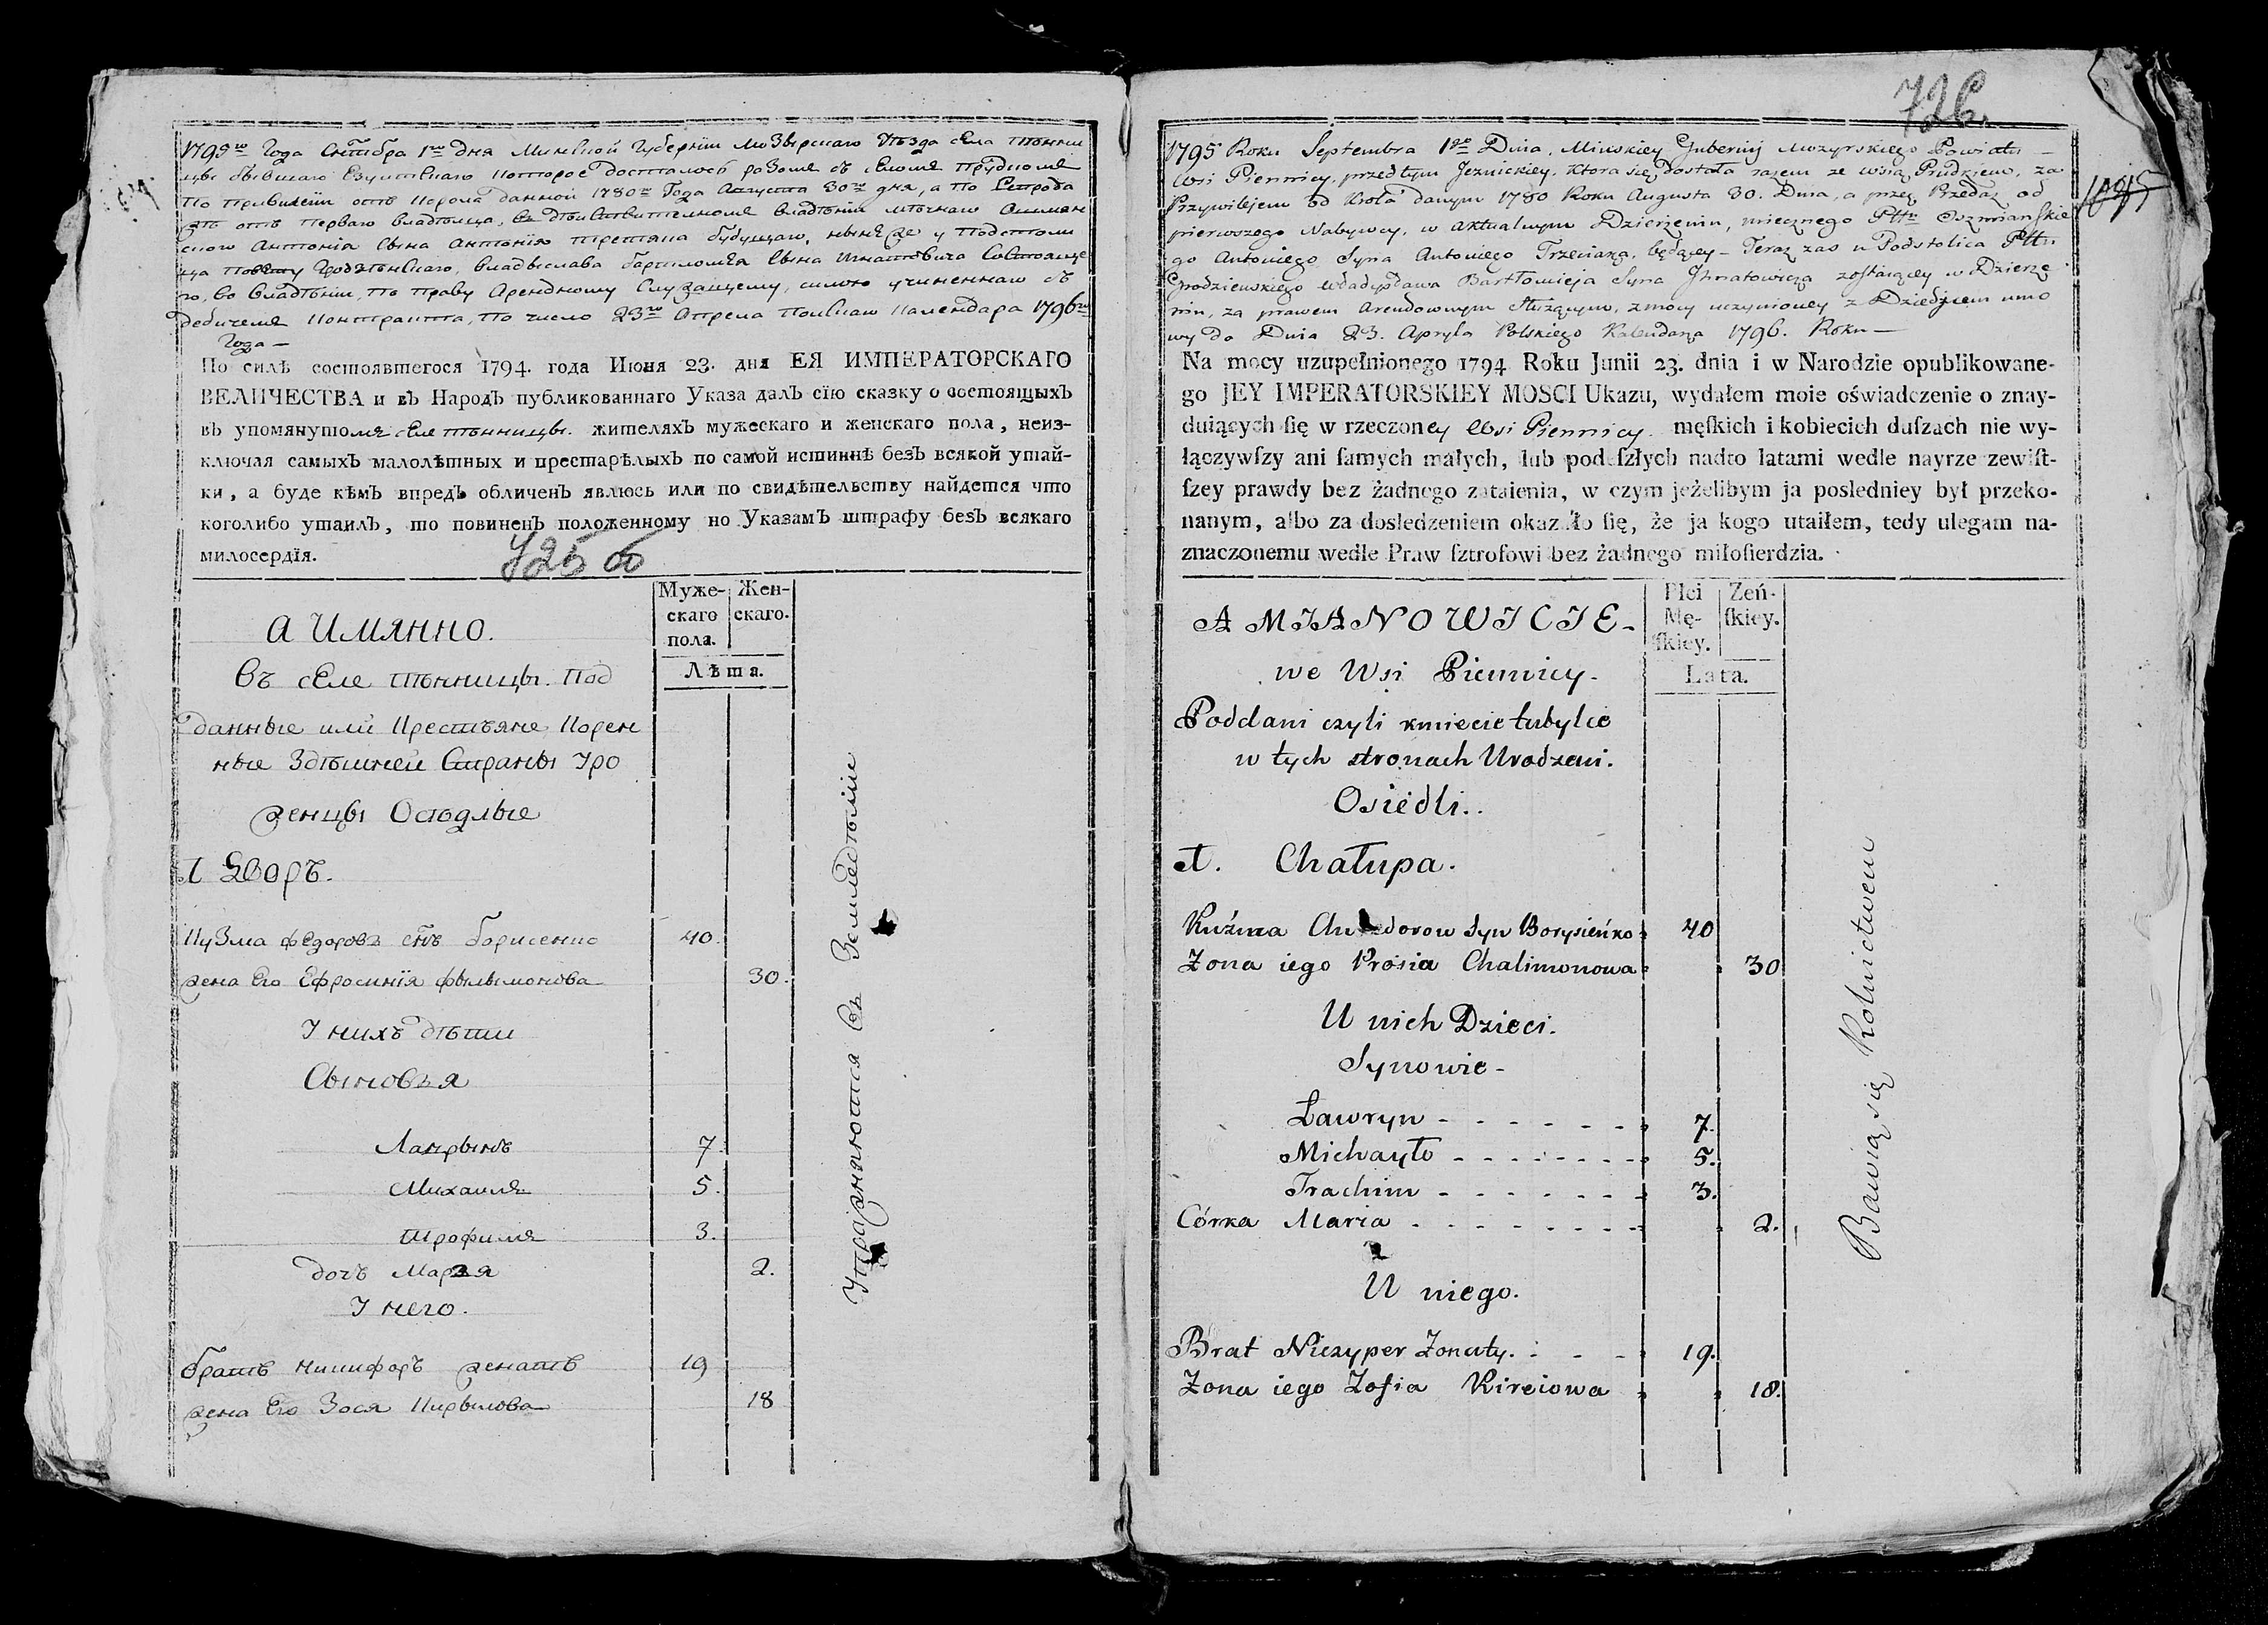 1795го Года Сентября 1го дня Минской Губернии Мозырскаго Уезда села Пѣнни
цы бывшаго Езуитскаго которое досталось разомъ съ селомъ Прудкомъ
По Привилегiи отъ Короля данной 1780го Года Августа 30го дня, а по
отъ перваго владѣльца, въ дѣйствительномъ владѣнiи мѣчнаго Ошмян
скаго Антонiя сына Антонiя будущаго, нынѣ же у Подстоли
ца Повѣту Гродзѣнскаго, Владыслава Бартломея сына Игнатовича состояще
го, во владѣнiи, по праву Арендному служащему, силою учиненнаго съ
дедичемъ Контракта, по число 23го Апреля Полскаго Календара 1796го
Года —
По силѣ состоявшегося 1794. года Июня 23. дня ЕЯ ИМПЕРАТОРСКАГО
ВЕЛИЧЕСТВА и въ Народъ публикованнаго Указа далъ сїю сказку о состоящыхъ
въ упомянутомъ селе пѣнницы. жителяхъ мужескаго и женскаго пола, неиз-
ключая самыхъ малолѣтных и престарѣлыхъ по самой истиннѣ безъ всякой утай-
ки, а буде кѣмъ впредъ обличенъ явлюсь или по свидѣтельству найдется что
коголибо утаилъ, то повиненъ положенному по Указамъ штрафу безъ всякаго
милосердїя.
725 об
Муже-
скаго
пола.
Жен-
скаго.
Лѣта.
А Имянно.
Въ селе Пѣнницы. Под
данные или Крестьяне Корен
ные Здѣшней Страны Уро
женцы Осѣдлые
1 Дворъ.
Кузма Федоровъ снъ Борисенко 40.
жена Его Ефросинїя Филимонова 30.
У нихъ дѣти
Сыновья
Лаврынъ 7.
Михаилъ 5.
Трофимъ 3.
дочъ Маръя 2.
У него.
братъ Никифоръ женатъ 19
жена Его Зося Кирылова 18
Упражняются въ Земледѣлiи
726.
1795 Roku Septembra 1go Dnia, Minskiey Gubernij Mozyrskiego Powiatu —
Wsi Piennicy, przedtym Jeznickiey, Ktora się Dostała razem ze wsią Prudkiem, za
Przywilejem od Krola danym 1780 Roku Augusta 30. Dnia, a przez Przedaż od
pierwszego Nabywcy, w aktualnym Dzierżeniu, miecznego Pttu Oszmianskie
go Antoniego Syna Antoniego będącey — Teraz zas u Podstolica Pttu
Grodzienskiego Władysława Bartłomieja Syna Ihnatowicza zostaiącey w Dzierże
niu, za prawem Arendownym służącym, z mocy uczynioney z Dziedzicem umo
wy do Dnia 23. Apryla Polskiego Kalendarza 1796. Roku —
Na mocy uzupełnionego 1794 Roku Junii 23. dnia i w Narodzie opublikowane-
go JEY IMPERATORSKIEY MOSCI Ukazu, wydałem moie oświadczenie o znay-
duiących ſię w rzeczoney Wsi Piennicy. męſkich i kobiecich duſzach nie wy-
łączywſzy ani ſamych małych, lub podeſzłych nadto latami wedle nayrzezewiſt-
ſzey prawdy bez żadnego zataienia, w czym jeżelibym ja posledniey był przeko-
nanym, albo za dosledzeniem okazało ſię, że ja kogo utaiłem, tedy ulegam na-
znaczonemu wedle Praw ſztrofowi bez żadnego miłoſierdzia.
Płci
Mę-
ſkiey.
Zeń-
ſkiey.
Lata.
A MIANOWICIE-
we Wsi Piennicy.
Poddani czyli kmiecie tubylce
w tych stronach Urodzeni.
Osiedli.
1. Chałupa.
Kuźma Chwedorow Syn Borysieńko 40
Zona iego Prosia Chalimonowa 30
U nich Dzieci.
Synowie-
Ławryn 7.
Michayło 5.
Trachim 3.
Córka Maria 2.
U niego.
Brat Niczyper Zonaty. 19.
Zona iego Zofia Kireiowa 18.
Bawią się Rolnictwem